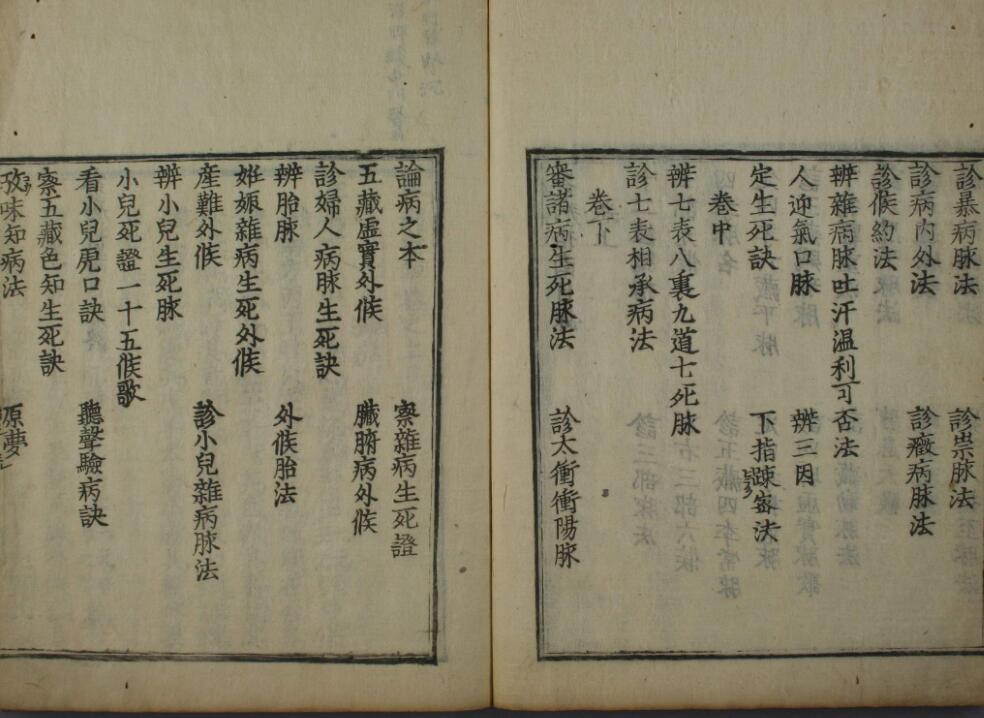 診暴病脉法 診祟脉法
診病內外法 診癥病脉法
診候約法
辨雜病脉吐汗温利可否法
人迎氣口脉 辨三因
定生死訣 下指踈宻法
卷中
辨七表八裏九道七死脉
診七表相承病法
卷下
審諸病生死脉法 診太衝衝陽脉
論病之本 察雜病生死證
五藏虛實外候 臟腑病外候
診婦人病脉生死訣
辨胎脉 外候胎法
妊娠雜病生死外候
產難外候 診小兒雜病脉法
辨小兒生死脉
小兒死證一十五候歌
看小兒虎口訣 聽聲驗病訣
察五藏色知生死訣
攷味知病法 原夢